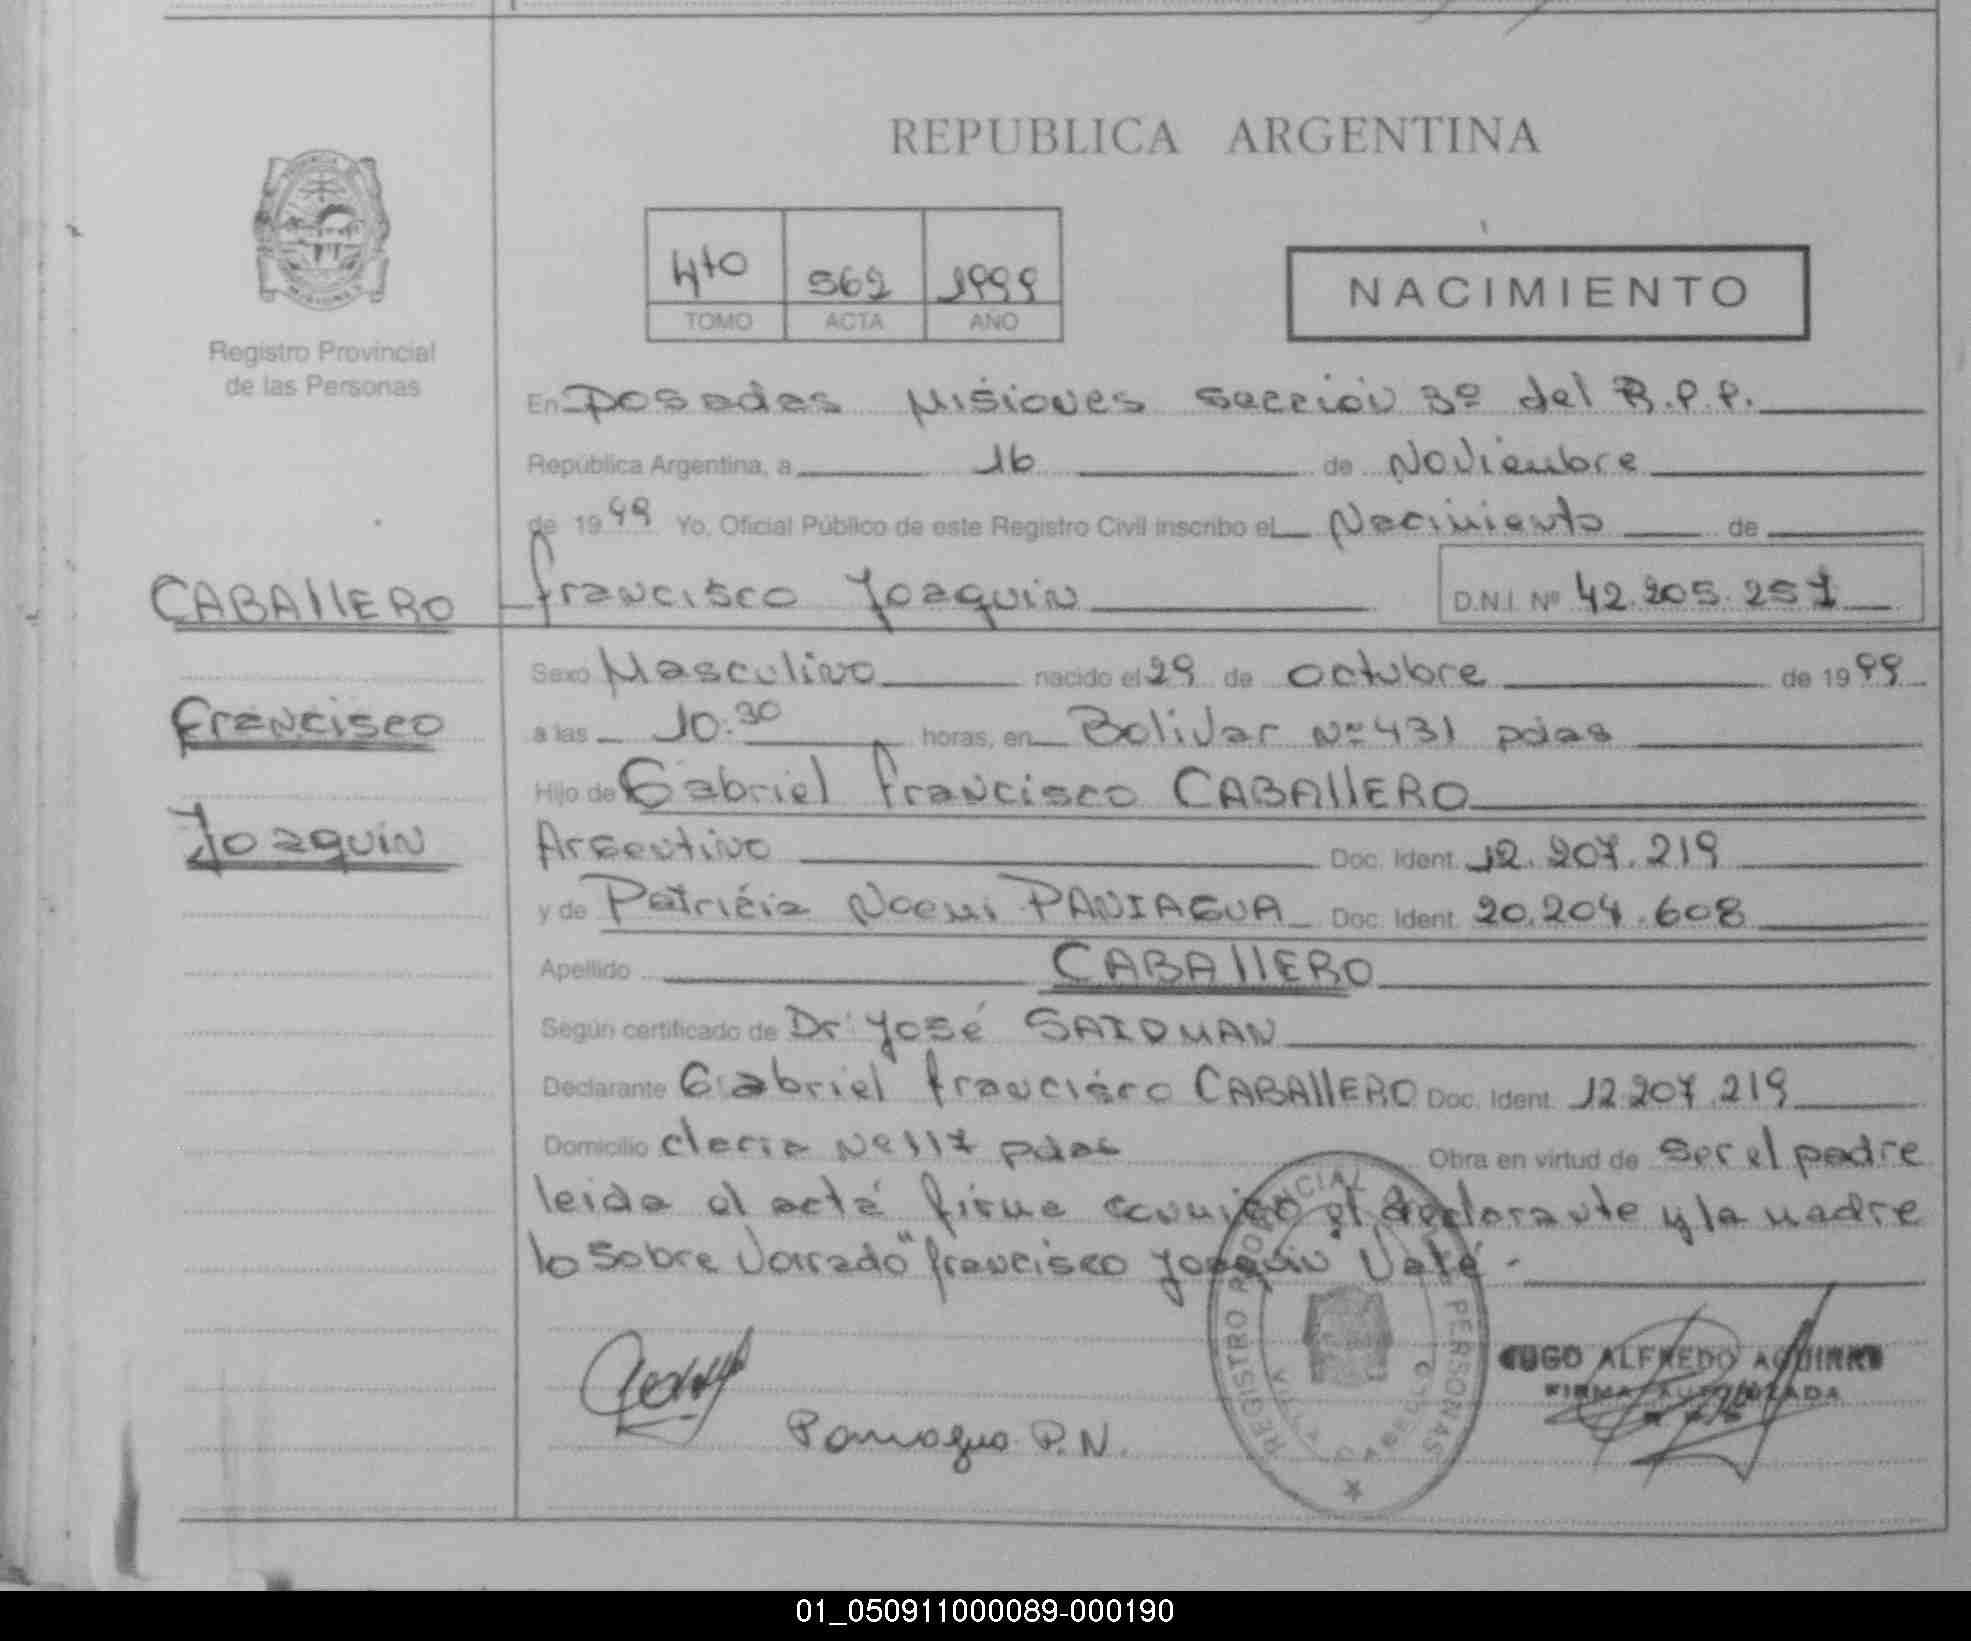 REPUBLICA ARGENTINA
MISIONES
Registro Provincial
de las Personas
4to 562 1999
TOMO ACTA AÑO
NACIMIENTO
En Posadas Misiones Sección 3º del R.P.P.
República Argentina, a 16 de Noviembre
de 1999 Yo, Oficial Público de este Registro Civil inscribo el Nacimiento de
CABAllERO
Francisco Joaquin D.N.I. Nº 42.205.257
Francisco
Joaquin
Sexo Masculino nacido el 29 de octubre de 1999
a las 10:30 horas, en Bolivar Nº 431 pdas
Hijo de Gabriel Francisco CABAllERO
Argentino Doc. Ident. 12.207.219
y de Patricia Noemi PANIAGUA Doc. Ident. 20.204.608
Apellido CABAllERO
Según certificado de Dr José SAIDMAN
Declarante Gabriel Francisco CABAllERO Doc. Ident. 12.207.219
Domicilio Nº 117 pdas Obra en virtud de ser el padre
leida el acta firma conmigo el declarante y la madre
lo sobre borrado "Francisco Joaquin" Vale.-
REGISTRO PROVINCIAL PERSONAS
VILLA CABELLO
HUGO ALFREDO AGUIRRE
FIRMA AUTORIZADA
Paniagua P.N.
01_050911000089-000190